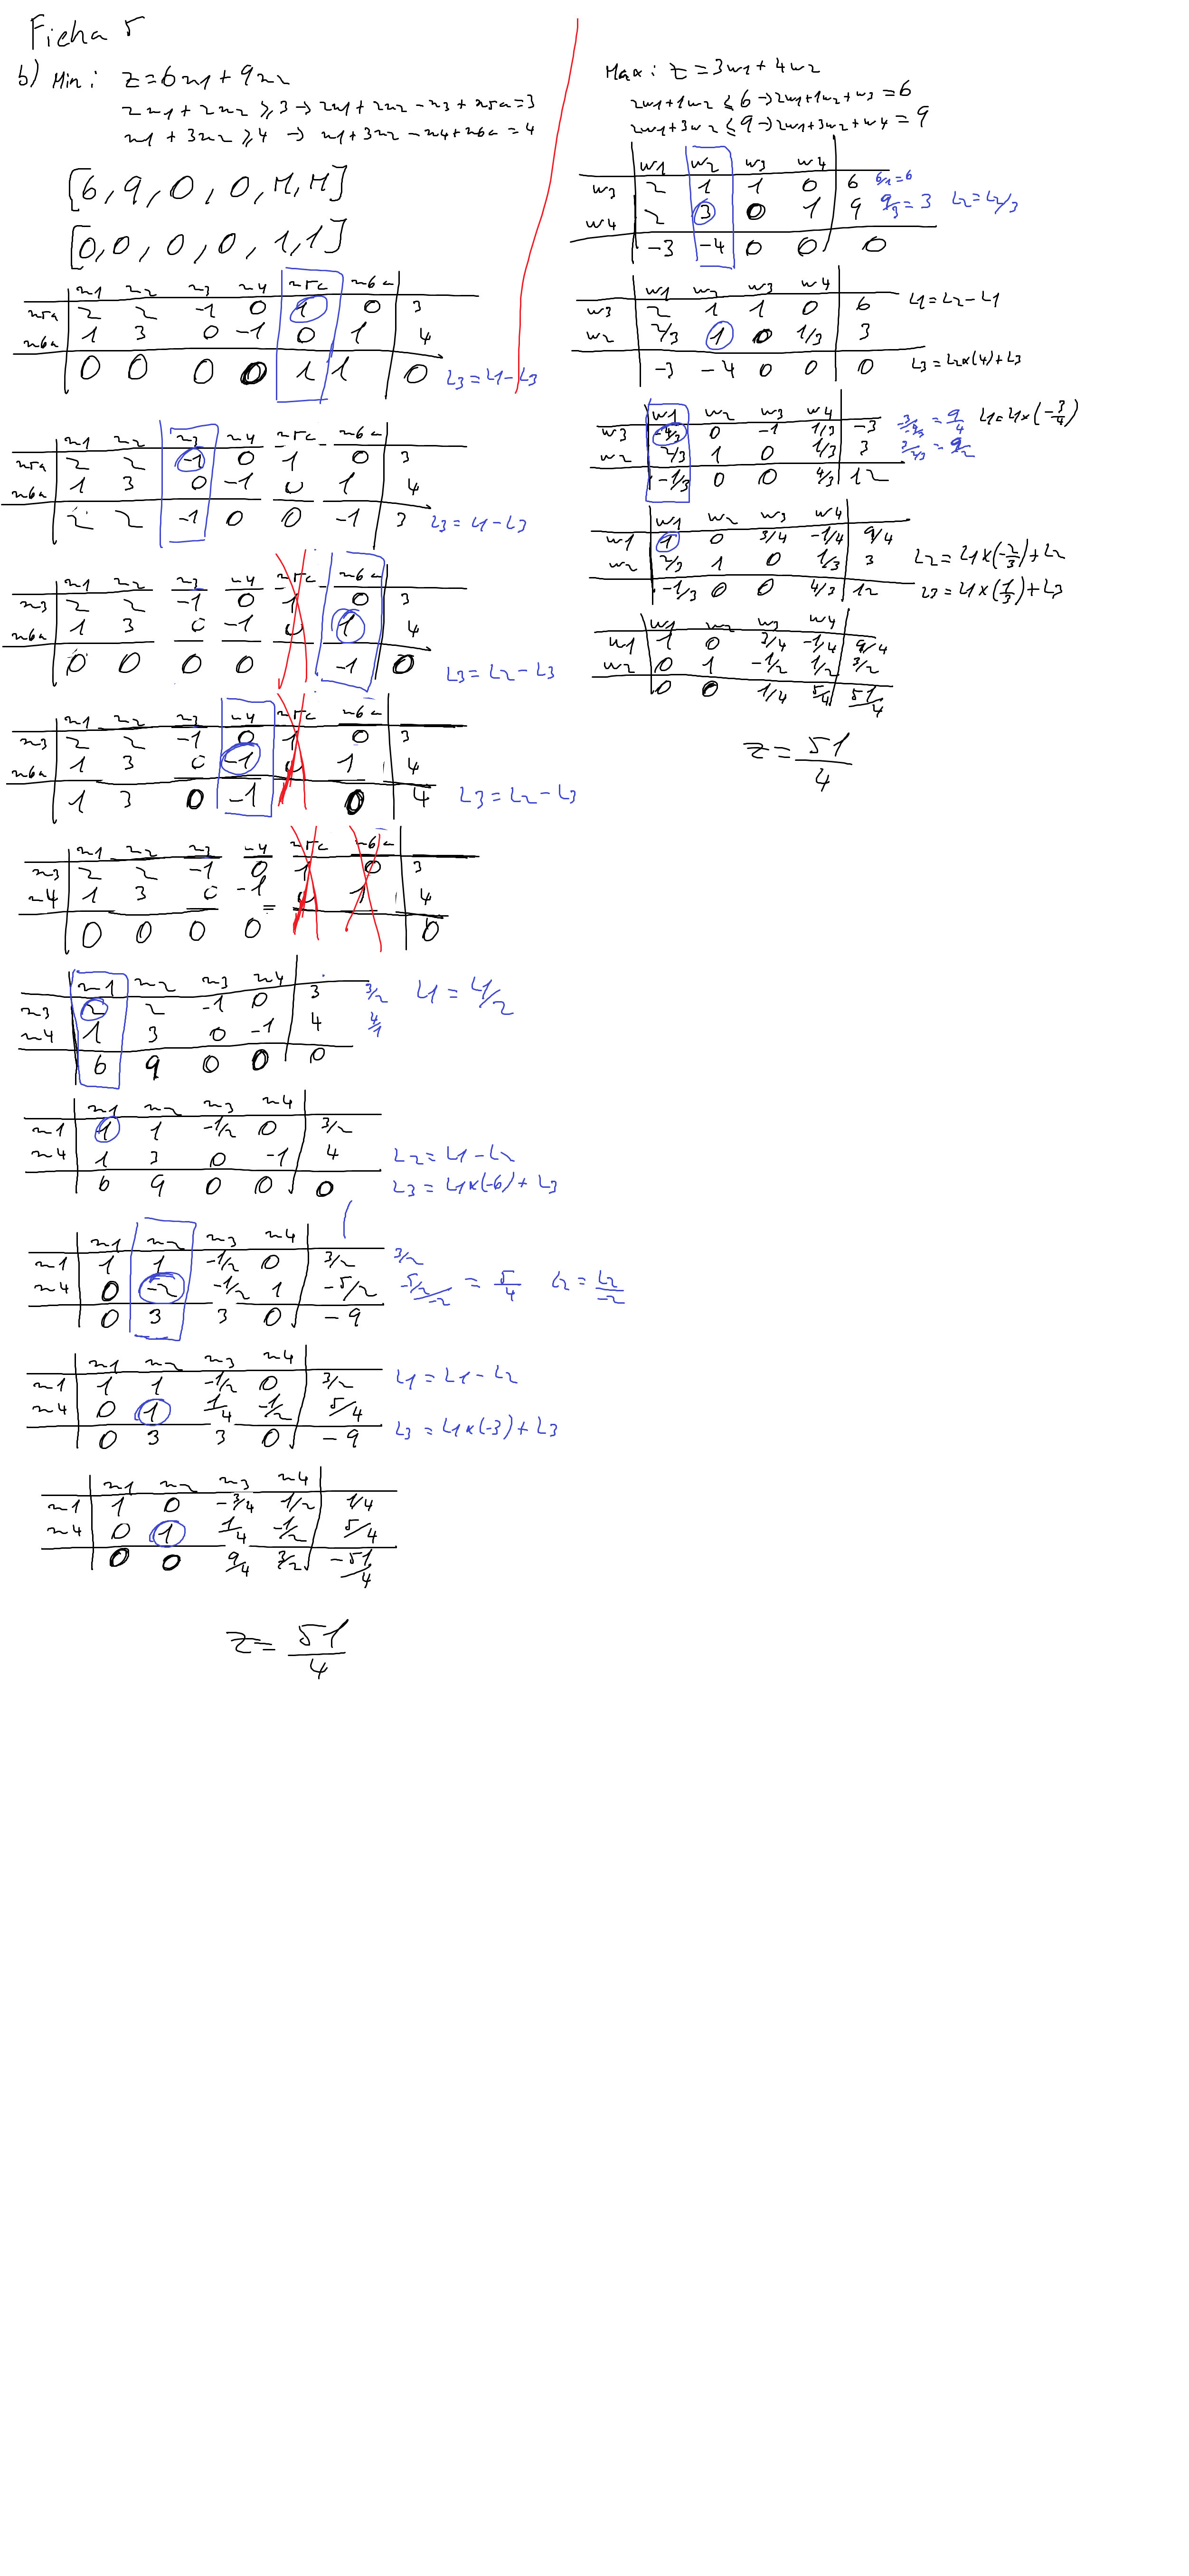 Ficha 5
b) Min: z=6x1+9x2
2x1+2x2 ≥ 3 → 2x1+2x2-x3+x5a=3
x1+3x2 ≥ 4 → x1+3x2-x4+x6a=4
[6, 9, 0, 0, M, M]
[0, 0, 0, 0, 1, 1]
x1 x2 x3 x4 x5a x6a
x5a 2 2 -1 0 1 0 3
x6a 1 3 0 -1 0 1 4
0 0 0 0 1 1 0 L3=L1-L3
x1 x2 x3 x4 x5a x6a
x5a 2 2 -1 0 1 0 3
x6a 1 3 0 -1 0 1 4
2 2 -1 0 0 -1 3 L3=L1-L3
x1 x2 x3 x4 x5a x6a
x3 2 2 -1 0 1 0 3
x6a 1 3 0 -1 0 1 4
0 0 0 0 -1 0 L3=L2-L3
x1 x2 x3 x4 x5a x6a
x3 2 2 -1 0 1 0 3
x6a 1 3 0 -1 0 1 4
1 3 0 -1 0 4 L3=L2-L3
x1 x2 x3 x4 x5a x6a
x3 2 2 -1 0 1 0 3
x4 1 3 0 -1 0 1 4
0 0 0 0 0
x1 x2 x3 x4
x3 2 2 -1 0 3 3/2 L1=L1/2
x4 1 3 0 -1 4 4/1
6 9 0 0 0
x1 x2 x3 x4
x1 1 1 -1/2 0 3/2
x4 1 3 0 -1 4 L2=L1-L2
6 9 0 0 0 L3=L1×(-6)+L3
x1 x2 x3 x4
x1 1 1 -1/2 0 3/2 3/2
x4 0 -2 -1/2 1 -5/2 -5/2/-2 = 5/4 L2=L2/-2
0 3 3 0 -9
x1 x2 x3 x4
x1 1 1 -1/2 0 3/2 L1=L1-L2
x4 0 1 1/4 -1/2 5/4
0 3 3 0 -9 L3=L1×(-3)+L3
x1 x2 x3 x4
x1 1 0 -3/4 1/2 1/4
x4 0 1 1/4 -1/2 5/4
0 0 9/4 3/2 -51/4
z=51/4
Max: z=3w1+4w2
2w1+1w2 ≤ 6 → 2w1+1w2+w3=6
2w1+3w2 ≤ 9 → 2w1+3w2+w4=9
w1 w2 w3 w4
w3 2 1 1 0 6 6/1=6
w4 2 3 0 1 9 9/3=3 L2=L2/3
-3 -4 0 0 0
w1 w2 w3 w4
w3 2 1 1 0 6 L1=L2-L1
w2 2/3 1 0 1/3 3
-3 -4 0 0 0 L3=L2×(4)+L3
w1 w2 w3 w4
w3 -4/3 0 -1 1/3 -3 -3/-4/3 = 9/4 L1=L1×(-3/4)
w2 2/3 1 0 1/3 3 3/2/3 = 9/2
-1/3 0 0 4/3 12
w1 w2 w3 w4
w1 1 0 3/4 -1/4 9/4
w2 2/3 1 0 1/3 3 L2=L1×(-2/3)+L2
-1/3 0 0 4/3 12 L3=L1×(1/3)+L3
w1 w2 w3 w4
w1 1 0 3/4 -1/4 9/4
w2 0 1 -1/2 1/2 3/2
0 0 1/4 5/4 51/4
z=51/4